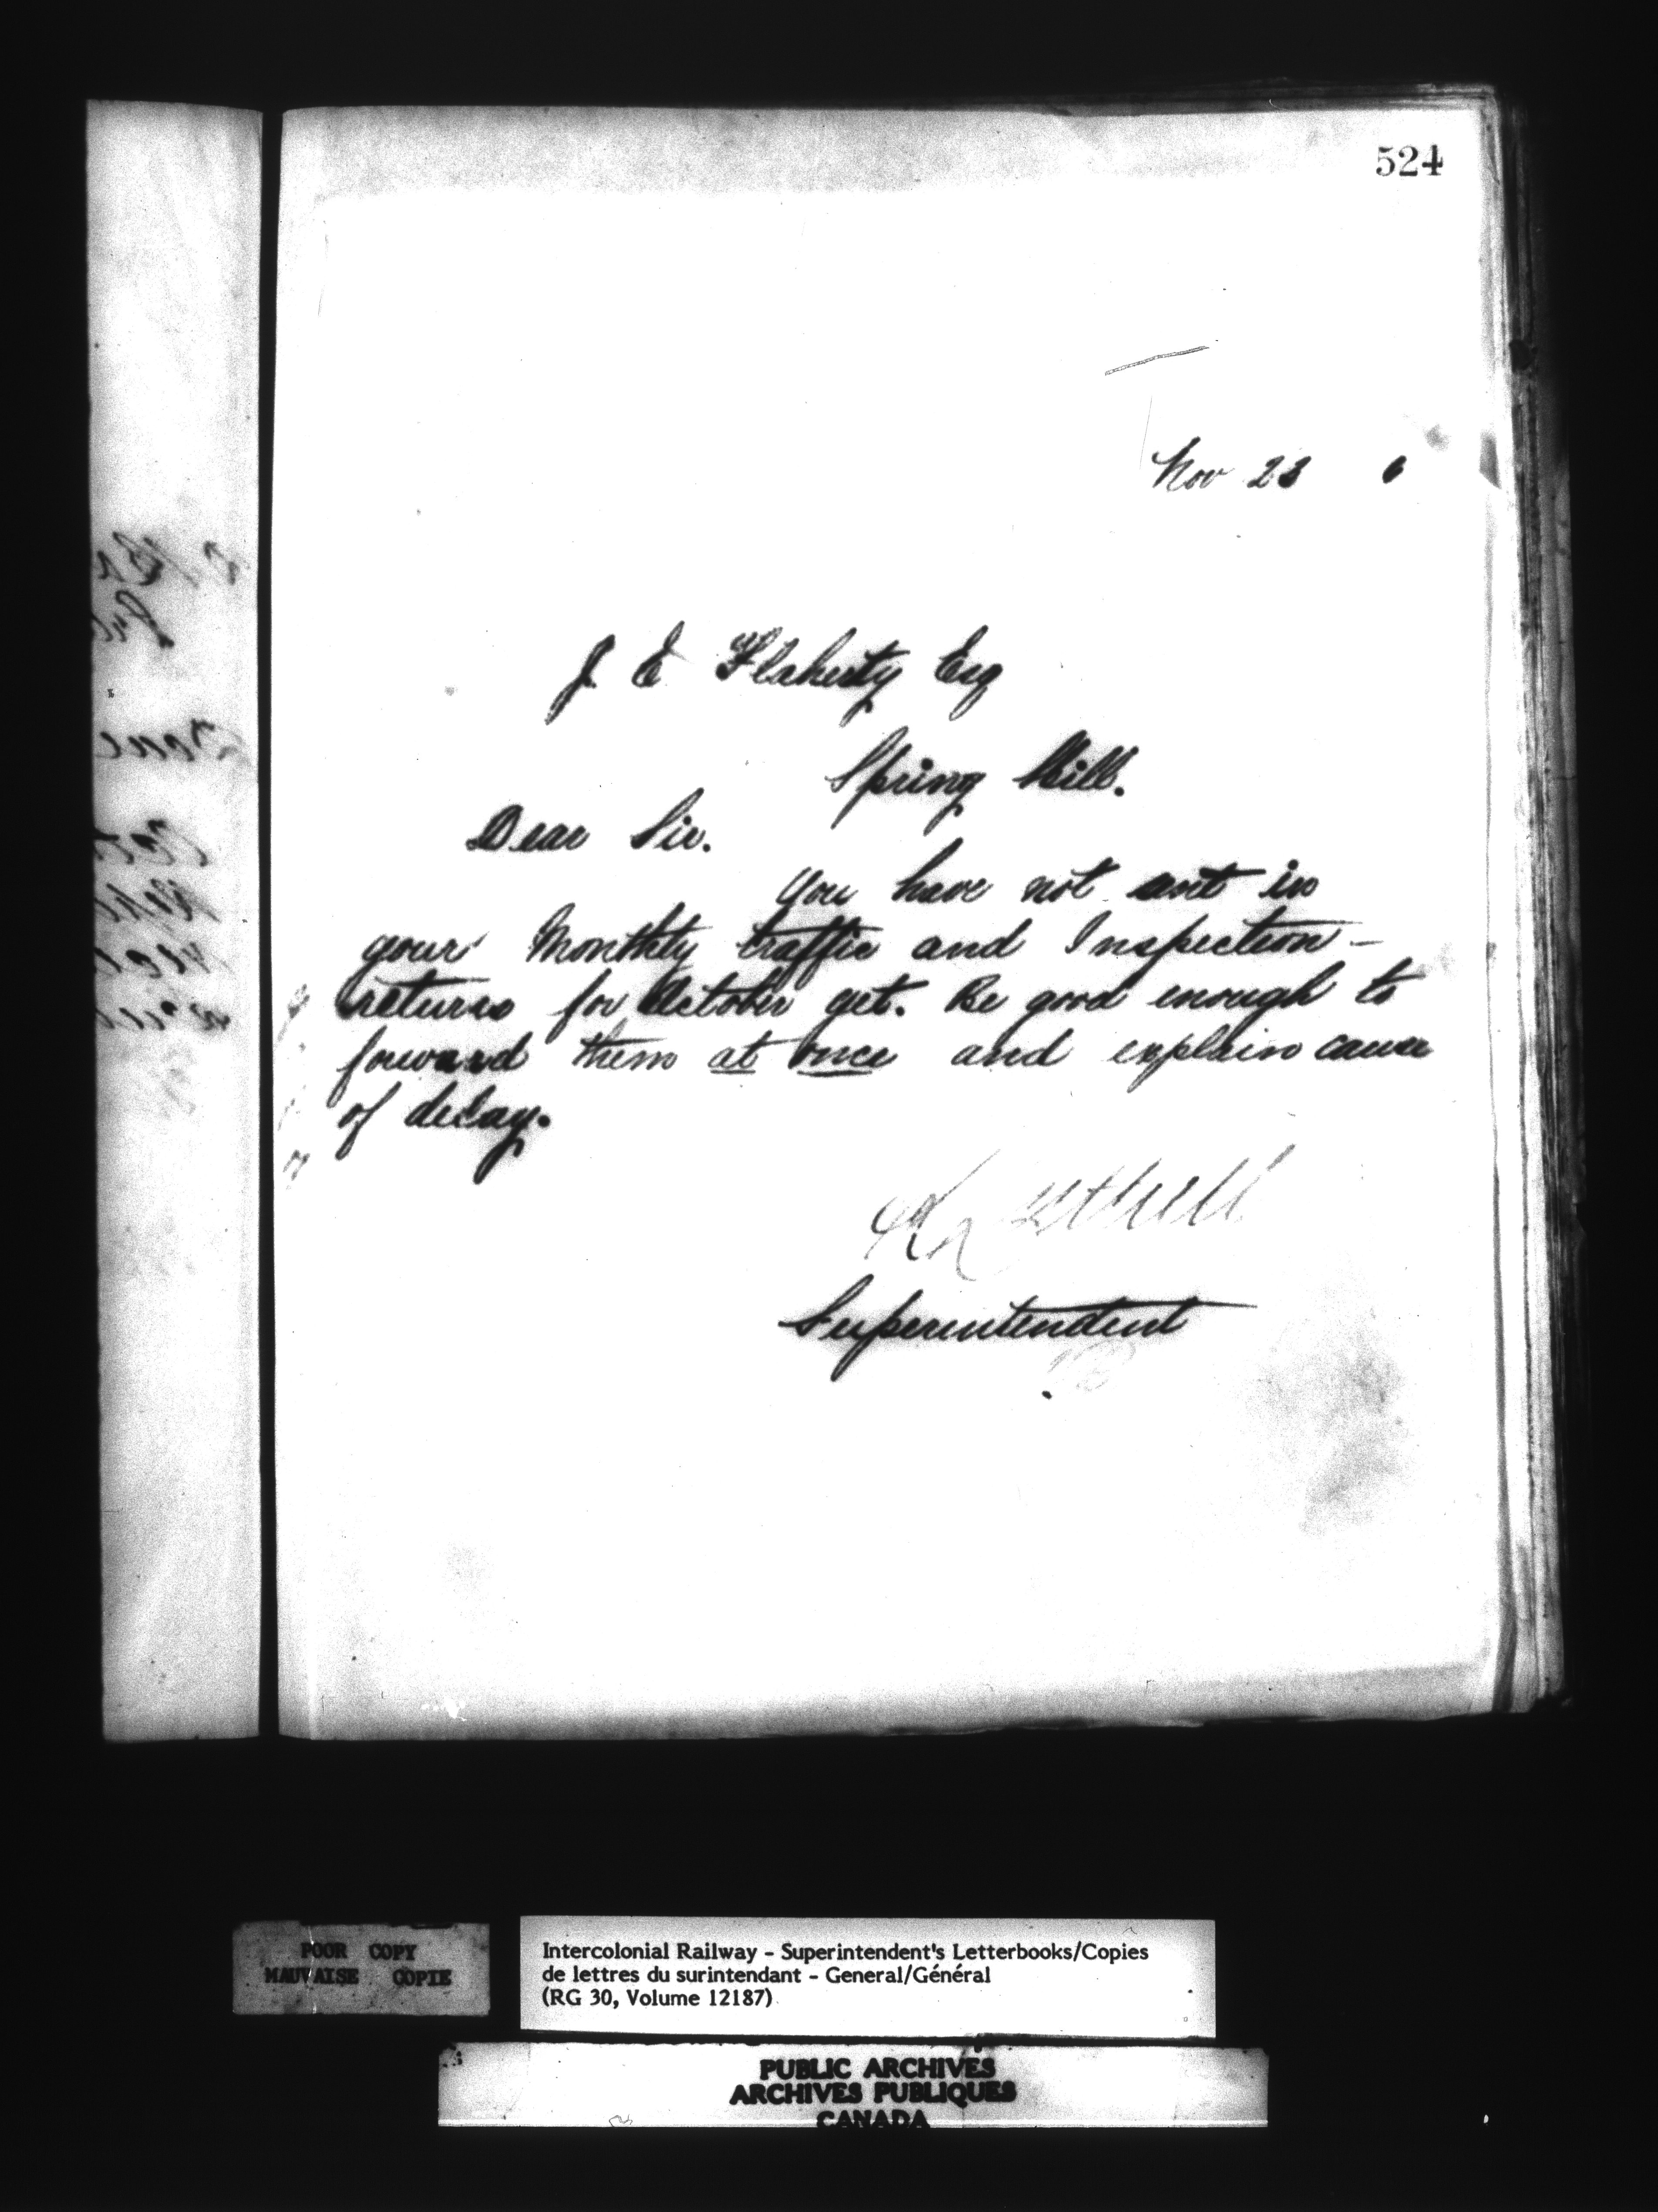 524
Nov 23 6
J. E Flaherty Esq
Spring Hill.
Dear Sir.
You have not sent in
your Monthly traffic and Inspection -
returns for October yet. Be good enough to
forward them at once and explain cause
of delay.
Superintendent
POOR COPY
MAUVAISE COPIE
Intercolonial Railway - Superintendent's Letterbooks/Copies
de lettres du surintendant - General/Général
(RG 30, Volume 12187)
PUBLIC ARCHIVES
ARCHIVES PUBLIQUES
CANADA